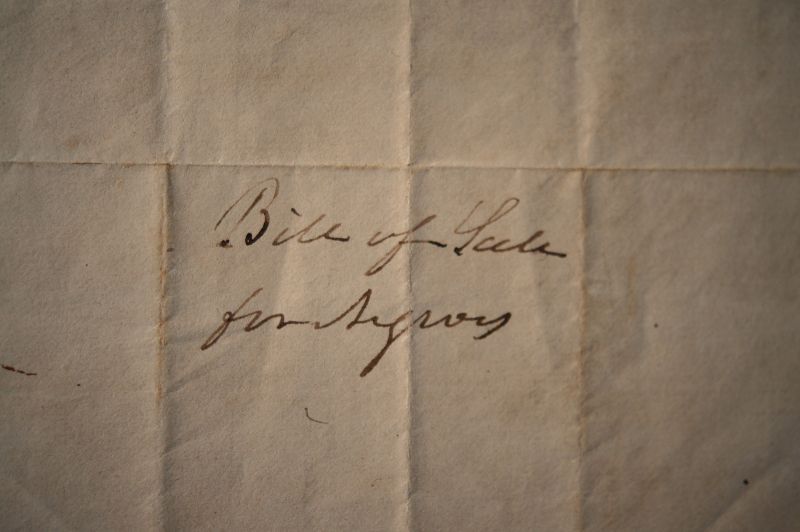 Bill of Sale
for Negroes